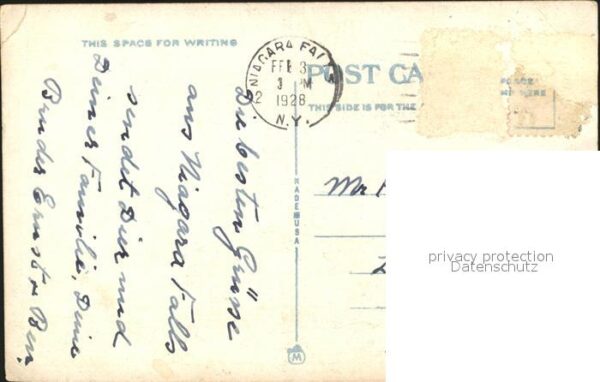 THIS SPACE FOR WRITING
Die besten Grüsse
aus Niagara Falls
sendet Dir und
Deiner Familie, Deine
Bruder Ernst &
NIAGARA FALLS
FEB 3
3 PM
1928
N.Y.
POST CA
THIS SIDE IS FOR THE
PLACE
HERE
MADE IN USA
M
Mr
privacy protection
Datenschutz